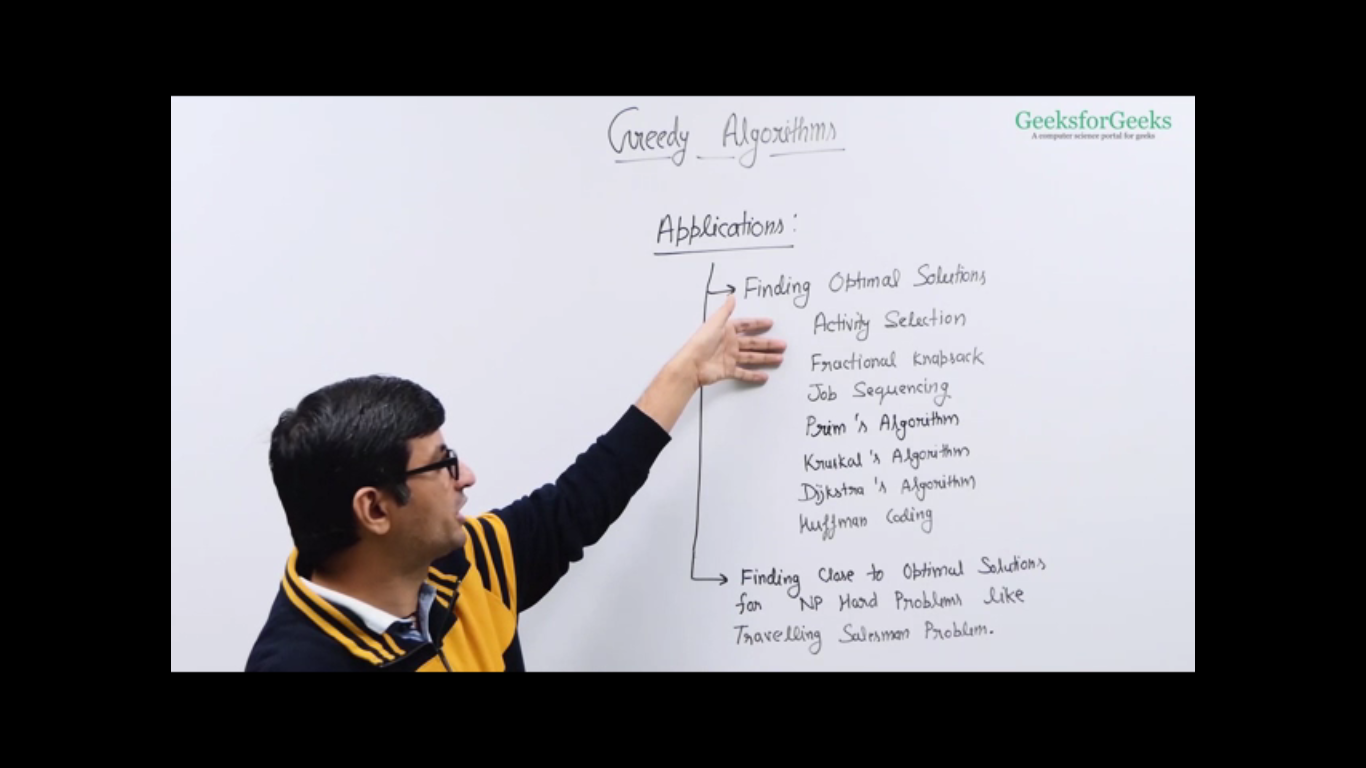 Greedy Algorithms
GeeksforGeeks
A computer science portal for geeks
Applications:
Finding Optimal Solutions
Activity Selection
Fractional Knapsack
Job Sequencing
Prim's Algorithm
Kruskal's Algorithm
Dijkstra's Algorithm
Huffman Coding
Finding Close to Optimal Solutions
for NP Hard Problems like
Travelling Salesman Problem.